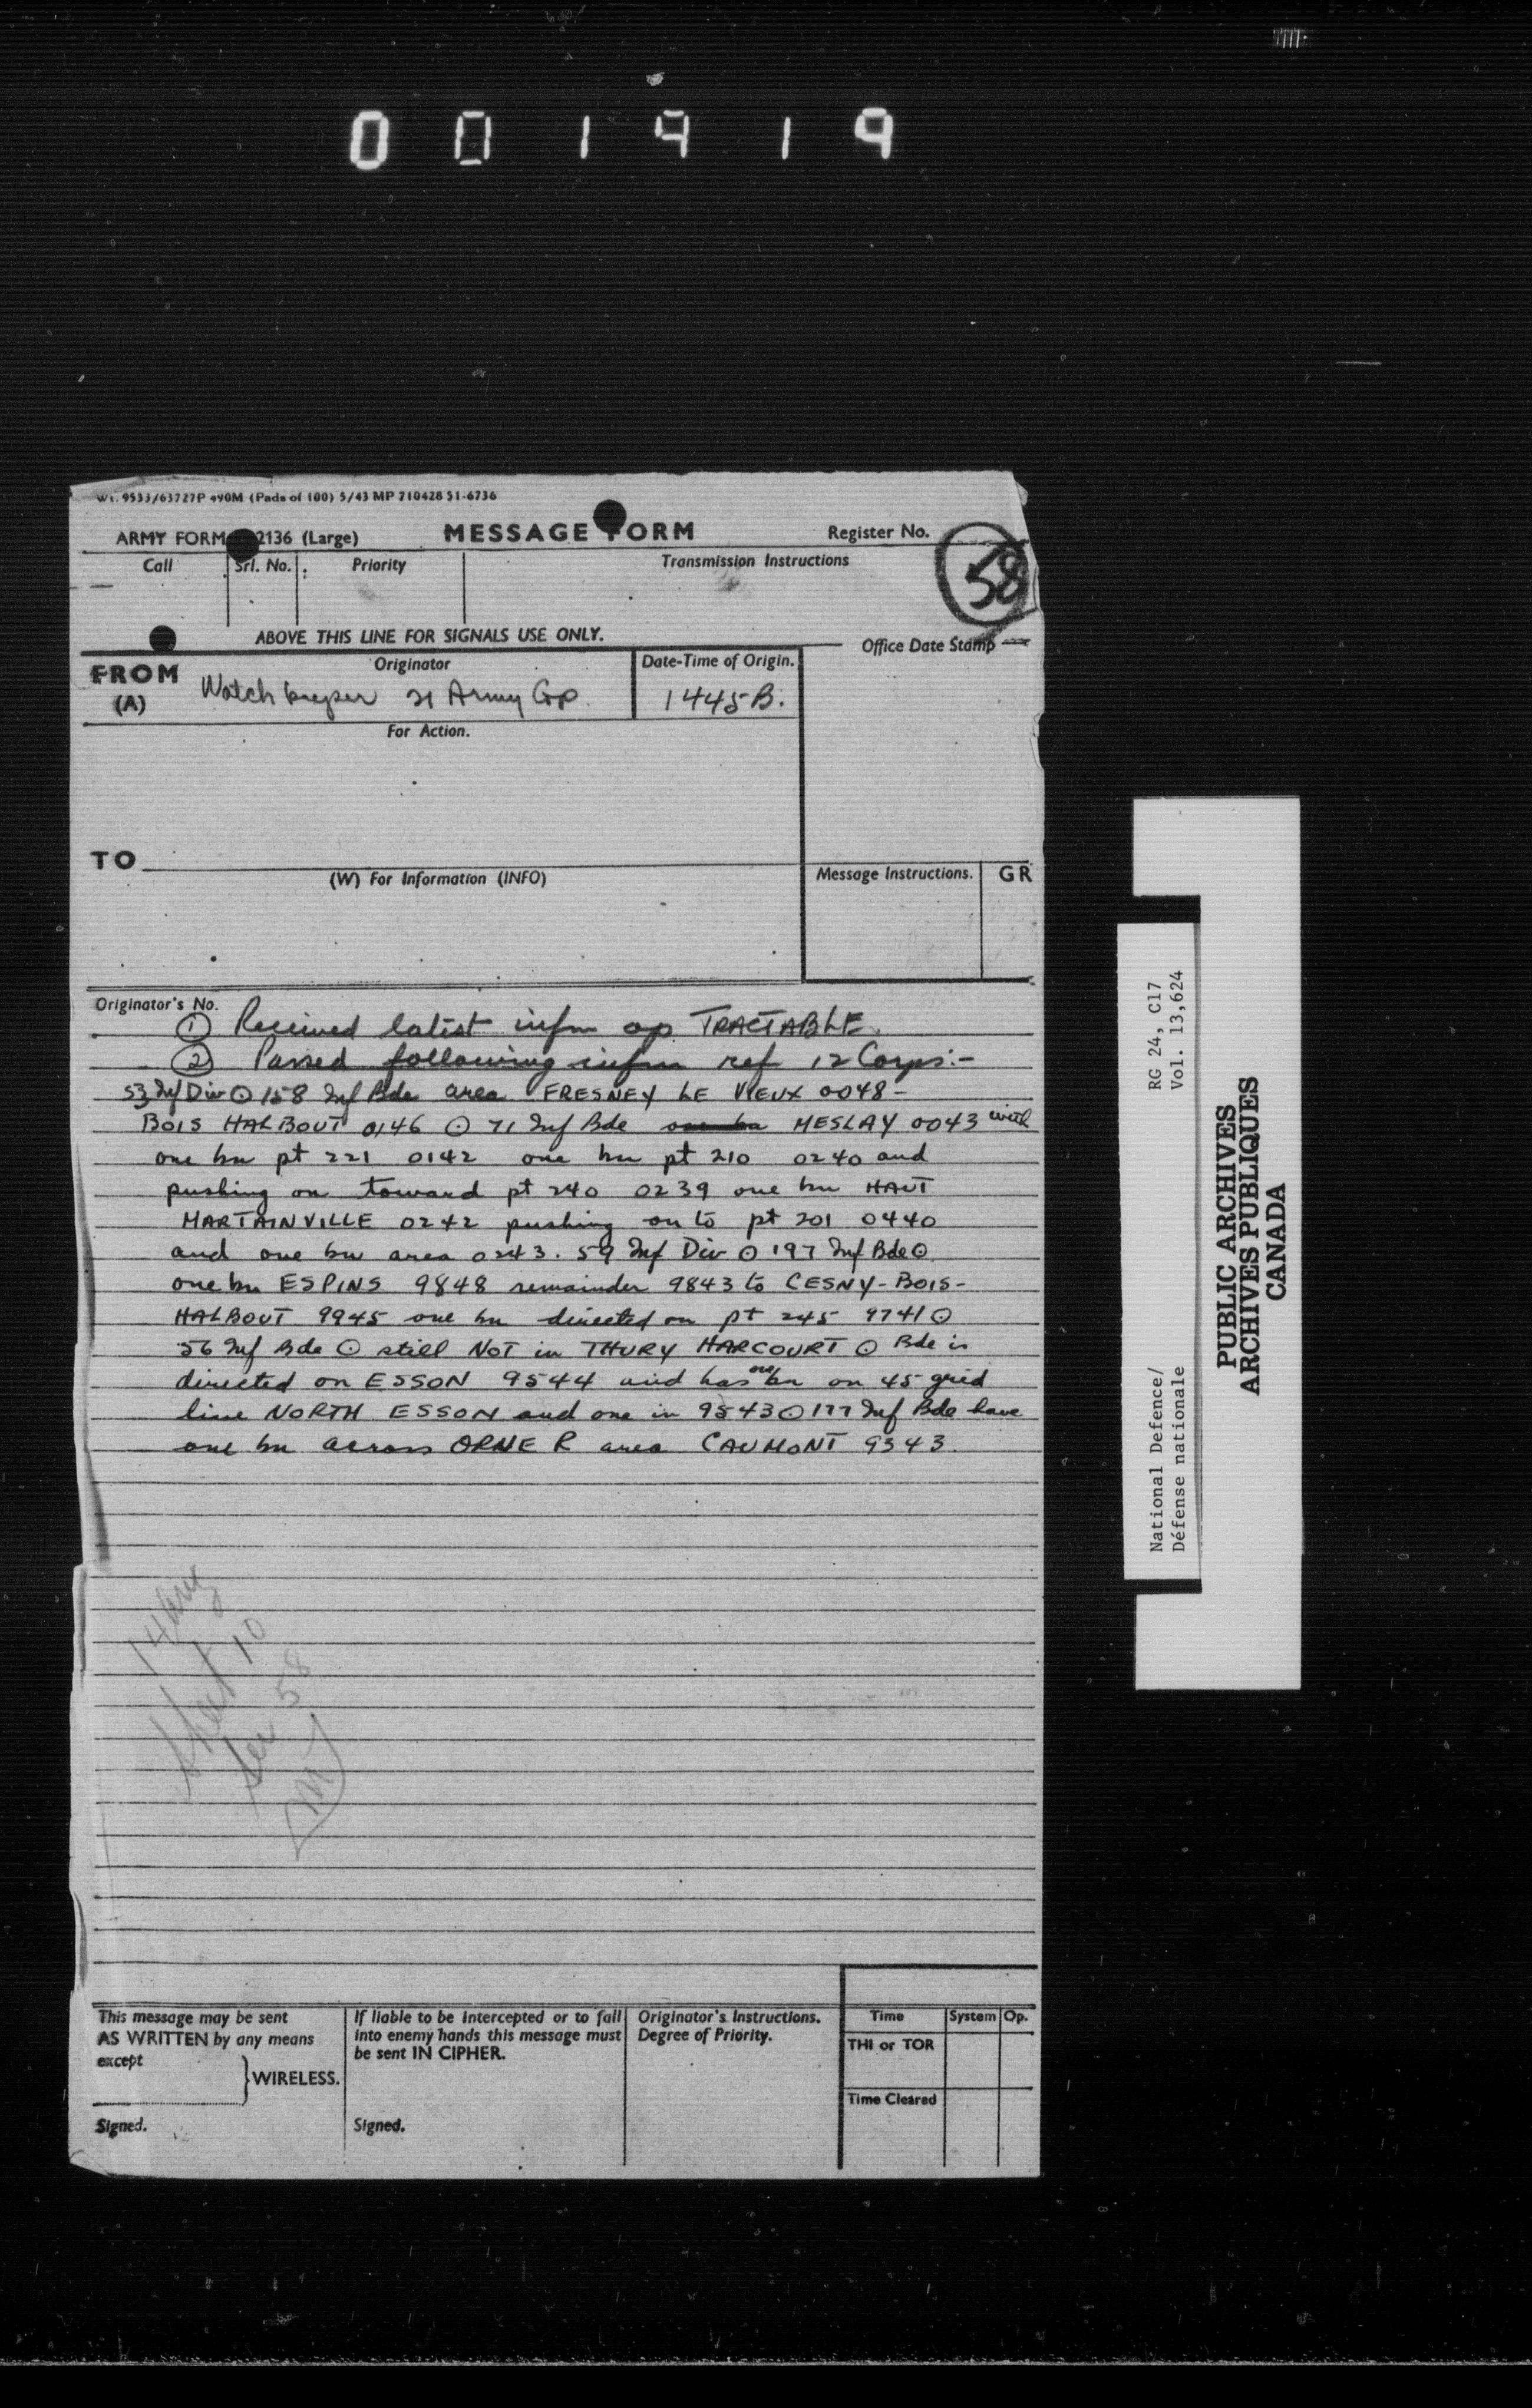 0 0 1 9 1 9
Wt. 9533/63727P 490M (Pads of 100) 5/43 MP 710428 51-6736
ARMY FORM 2136 (Large)
MESSAGE FORM
Register No.
58
Call
Srl. No.
Priority
Transmission Instructions
ABOVE THIS LINE FOR SIGNALS USE ONLY.
Office Date Stamp
FROM
(A)
Originator
Watchkeeper 21 Army Gp.
Date-Time of Origin.
1445B.
For Action.
TO
(W) For Information (INFO)
Message Instructions.
GR
Originator's No.
① Received latest infm op TRACTABLE.
② Passed following infm ref 12 Corps:-
53 Inf Div ⊙ 158 Inf Bde area FRESNEY LE VIEUX 0048 -
BOIS HALBOUT 0146 ⊙ 71 Inf Bde one bn MESLAY 0043 with
one bn pt 221 0142 one bn pt 210 0240 and
pushing on toward pt 240 0239 one bn HAUT
MARTAINVILLE 0242 pushing on to pt 201 0440
and one bn area 0243. 59 Inf Div ⊙ 197 Inf Bde ⊙
one bn ESPINS 9848 remainder 9843 to CESNY-BOIS-
HALBOUT 9945 one bn directed on pt 245 9741 ⊙
56 Inf Bde ⊙ still NOT in THURY HARCOURT ⊙ Bde is
directed on ESSON 9544 and has one bn on 45 grid
line NORTH ESSON and one in 9543 ⊙ 177 Inf Bde have
one bn across ORNE R area CAUMONT 9343.
14 Aug
Sheet 10
Ser 58
This message may be sent
AS WRITTEN by any means
except
WIRELESS.
Signed.
If liable to be intercepted or to fall
into enemy hands this message must
be sent IN CIPHER.
Signed.
Originator's Instructions.
Degree of Priority.
Time
System
Op.
THI or TOR
Time Cleared
National Defence/
Défense nationale
RG 24, C17
Vol. 13,624
PUBLIC ARCHIVES
ARCHIVES PUBLIQUES
CANADA